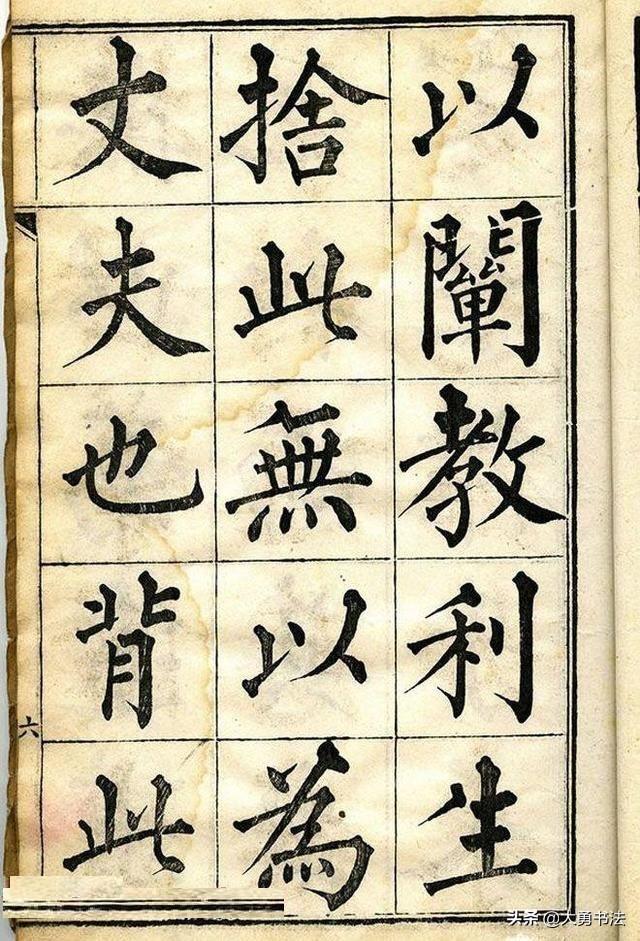 以闡教利生
捨此無以為
丈夫也背此
六
头条 @大勇书法